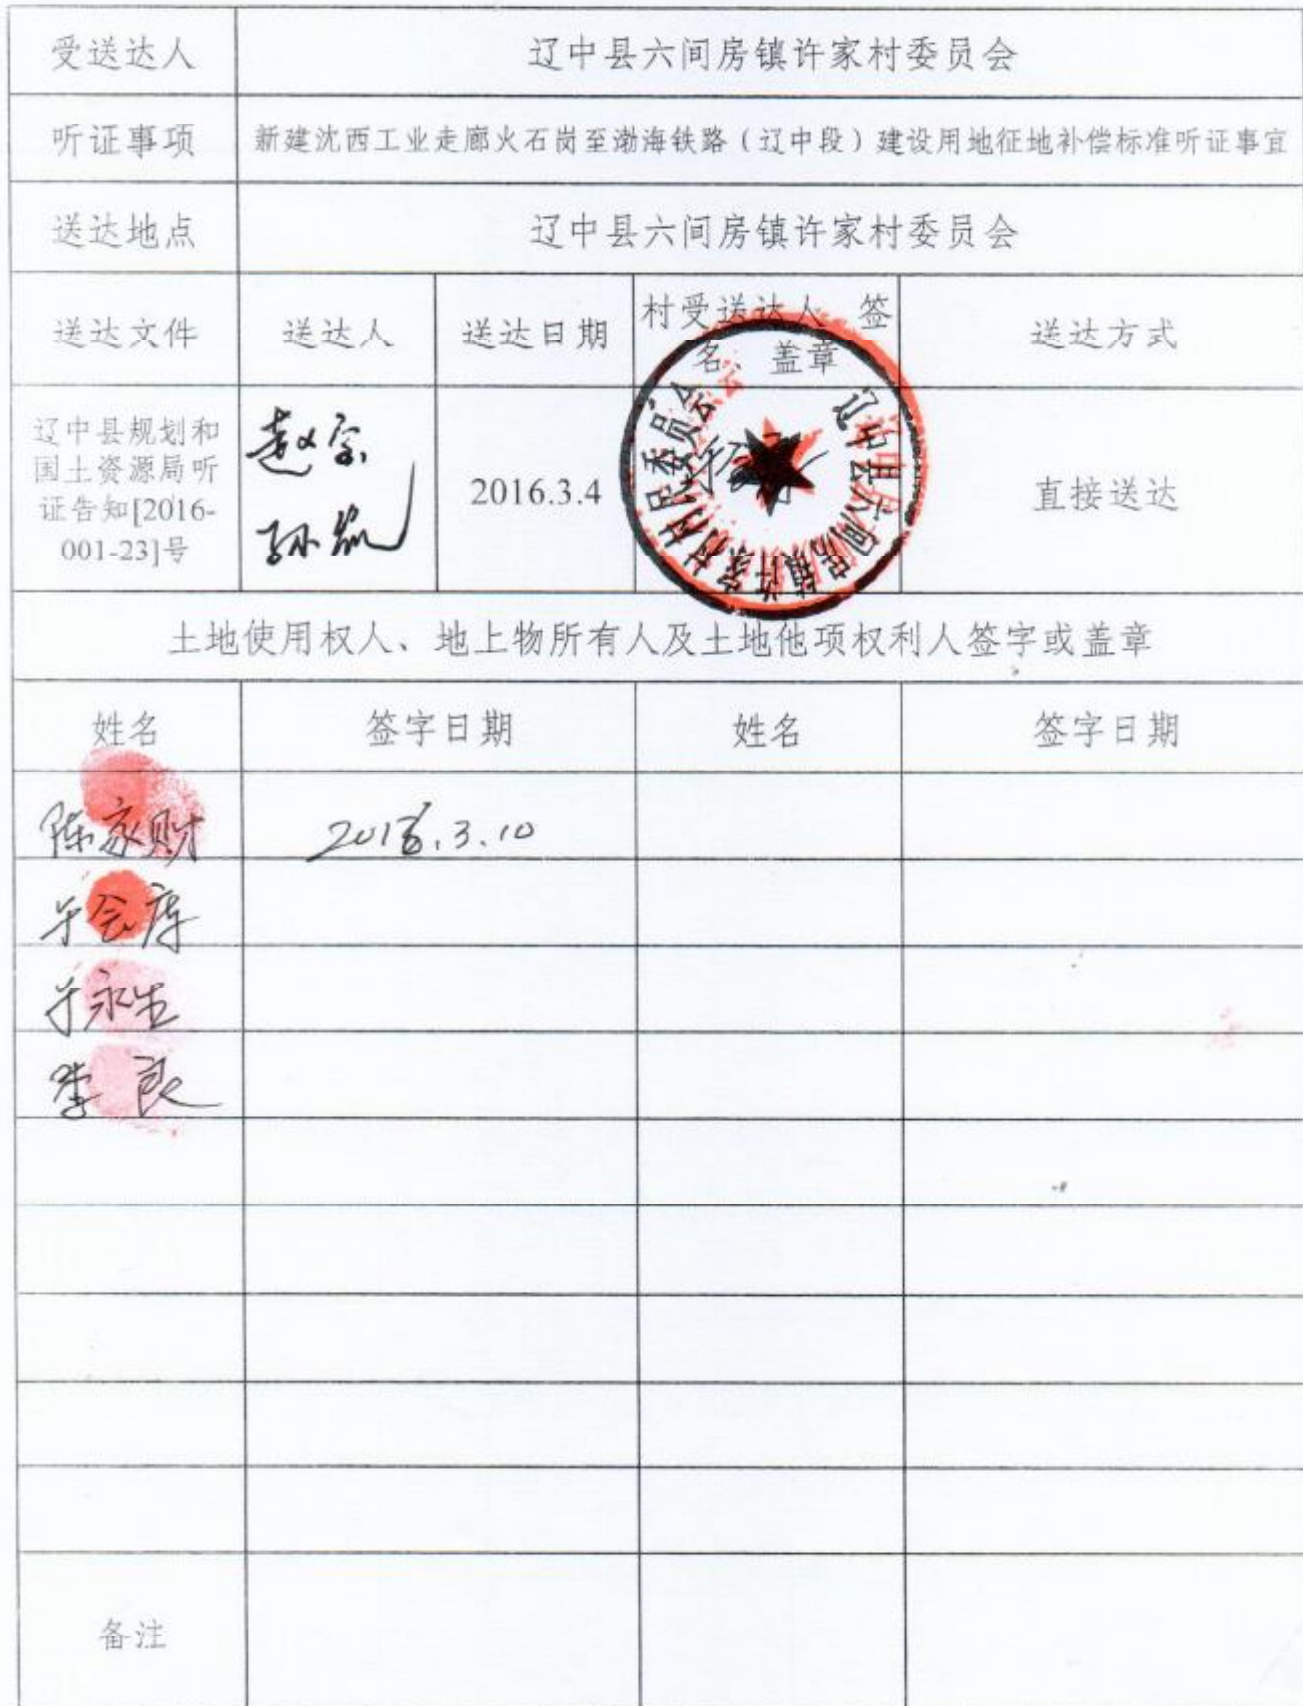 受送达人
辽中县六间房镇许家村委员会
听证事项
新建沈西工业走廊火石岗至渤海铁路（辽中段）建设用地征地补偿标准听证事宜
送达地点
辽中县六间房镇许家村委员会
送达文件
送达人
送达日期
村受送达人 签
名、盖章
送达方式
辽中县规划和
国土资源局听
证告知[2016-
001-23]号
2016.3.4
辽中县六间房镇许家村村民委员会
直接送达
土地使用权人、地上物所有人及土地他项权利人签字或盖章
姓名
签字日期
姓名
签字日期
陈家财
2016.3.10
于会库
于永生
李良
备注